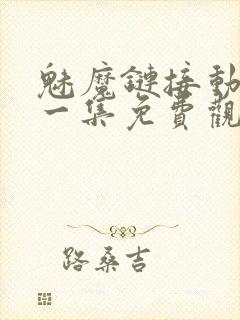 魅魔鏈接動
一集免費觀
路桑吉